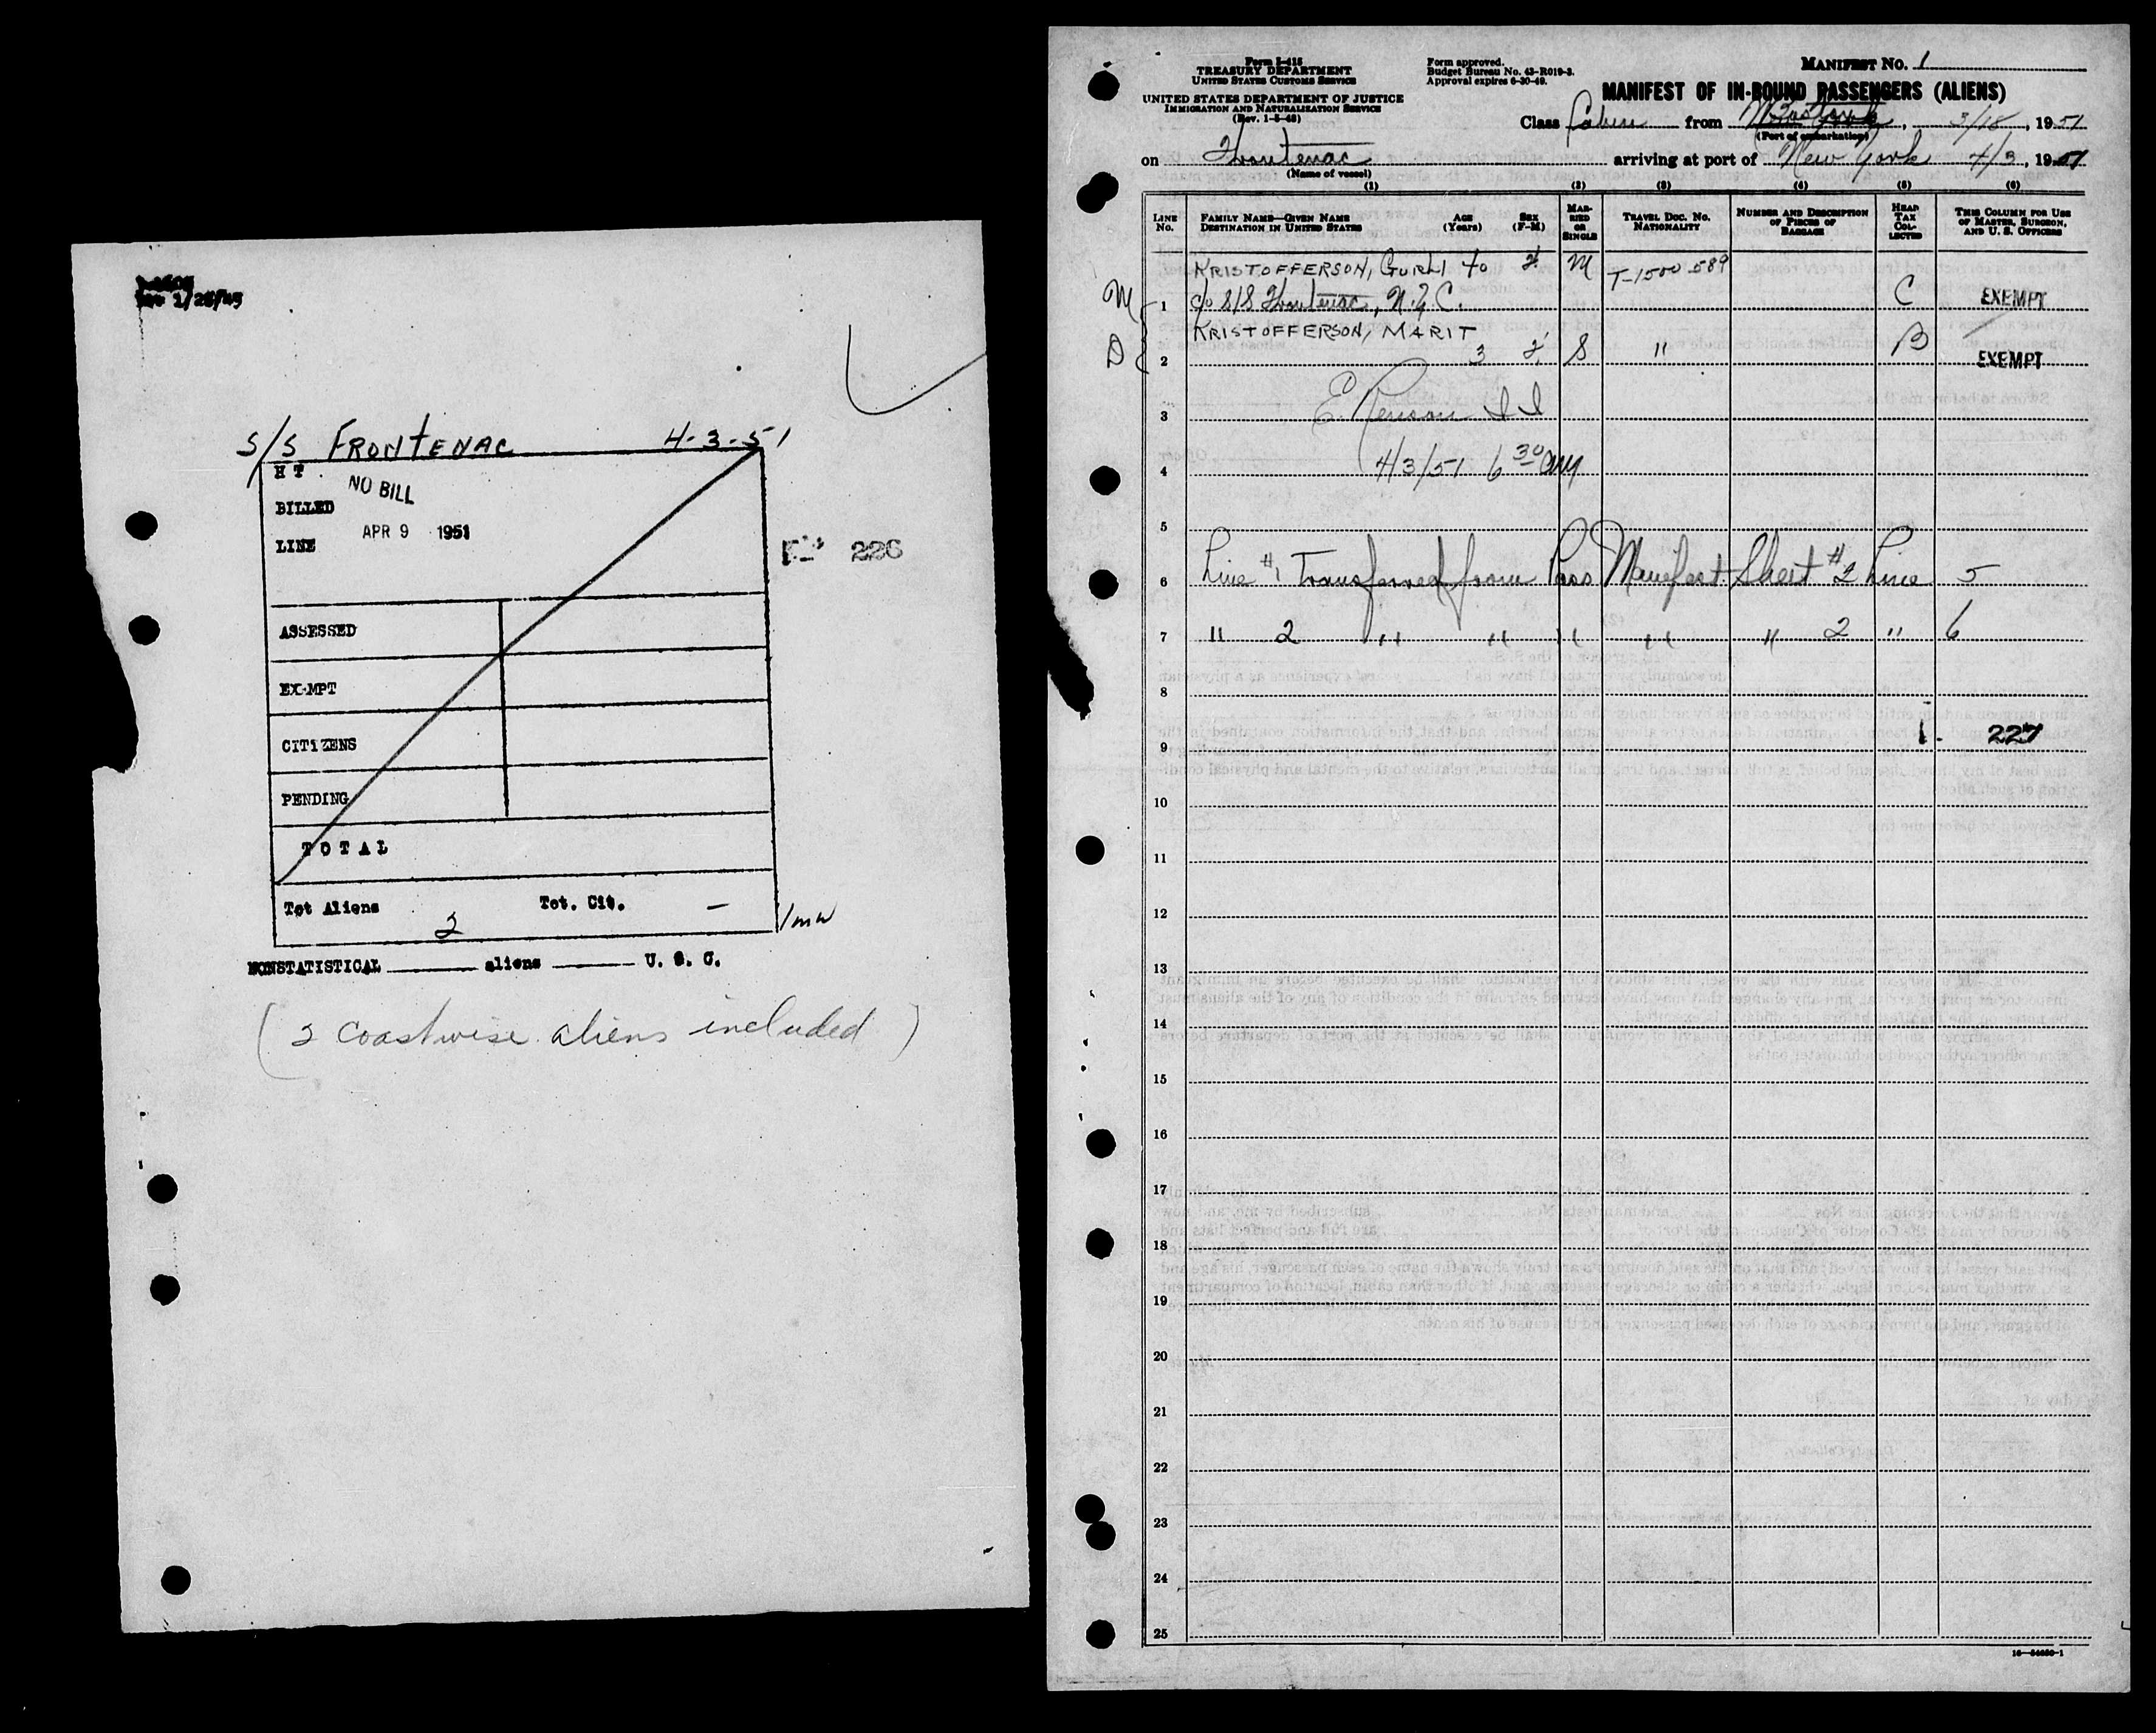 Rev 1/25/45
S/S FRONTENAC 4-3-51
H T
NO BILL
BILLED
APR 9 1951
LINE
226
ASSESSED
EXEMPT
CITIZENS
PENDING
TOTAL
Tot Aliens 2 Tot. Cit. —
1/mw
NONSTATISTICAL aliens U. S. C.
( 2 coastwise aliens included )
Form I-415
TREASURY DEPARTMENT
UNITED STATES CUSTOMS SERVICE
UNITED STATES DEPARTMENT OF JUSTICE
IMMIGRATION AND NATURALIZATION SERVICE
(Rev. 1-5-48)
Form approved.
Budget Bureau No. 43-R019-3.
Approval expires 6-30-49.
MANIFEST No. 1
MANIFEST OF IN-BOUND PASSENGERS (ALIENS)
Class Cabin from , 3/18, 1951
(Port of embarkation)
on Frontenac arriving at port of New York 4/3, 1951
(Name of vessel)
(1) (2) (3) (4) (5) (6)
LINE No.
FAMILY NAME—GIVEN NAME AGE (Years) SEX (F-M)
DESTINATION IN UNITED STATES
MARRIED OR SINGLE
TRAVEL DOC. NO. NATIONALITY
NUMBER AND DESCRIPTION OF PIECES OF BAGGAGE
HEAD TAX COLLECTED
THIS COLUMN FOR USE OF MASTER, SURGEON, AND U. S. OFFICERS
KRISTOFFERSON, GURLI 40 F M T-1500 589
M 1 c/o S/S Frontenac, N.Y.C. C EXEMPT
KRISTOFFERSON, MARIT
D 2 3 F S " B EXEMPT
3
4 4/3/51 6 30 am
5
6 Line #1 Transferred from Pass Manifest Sheet #2 Line 5
7 " 2 " " " " " 2 " 6
8
9 227
10
11
12
13
14
15
16
17
18
19
20
21
22
23
24
25